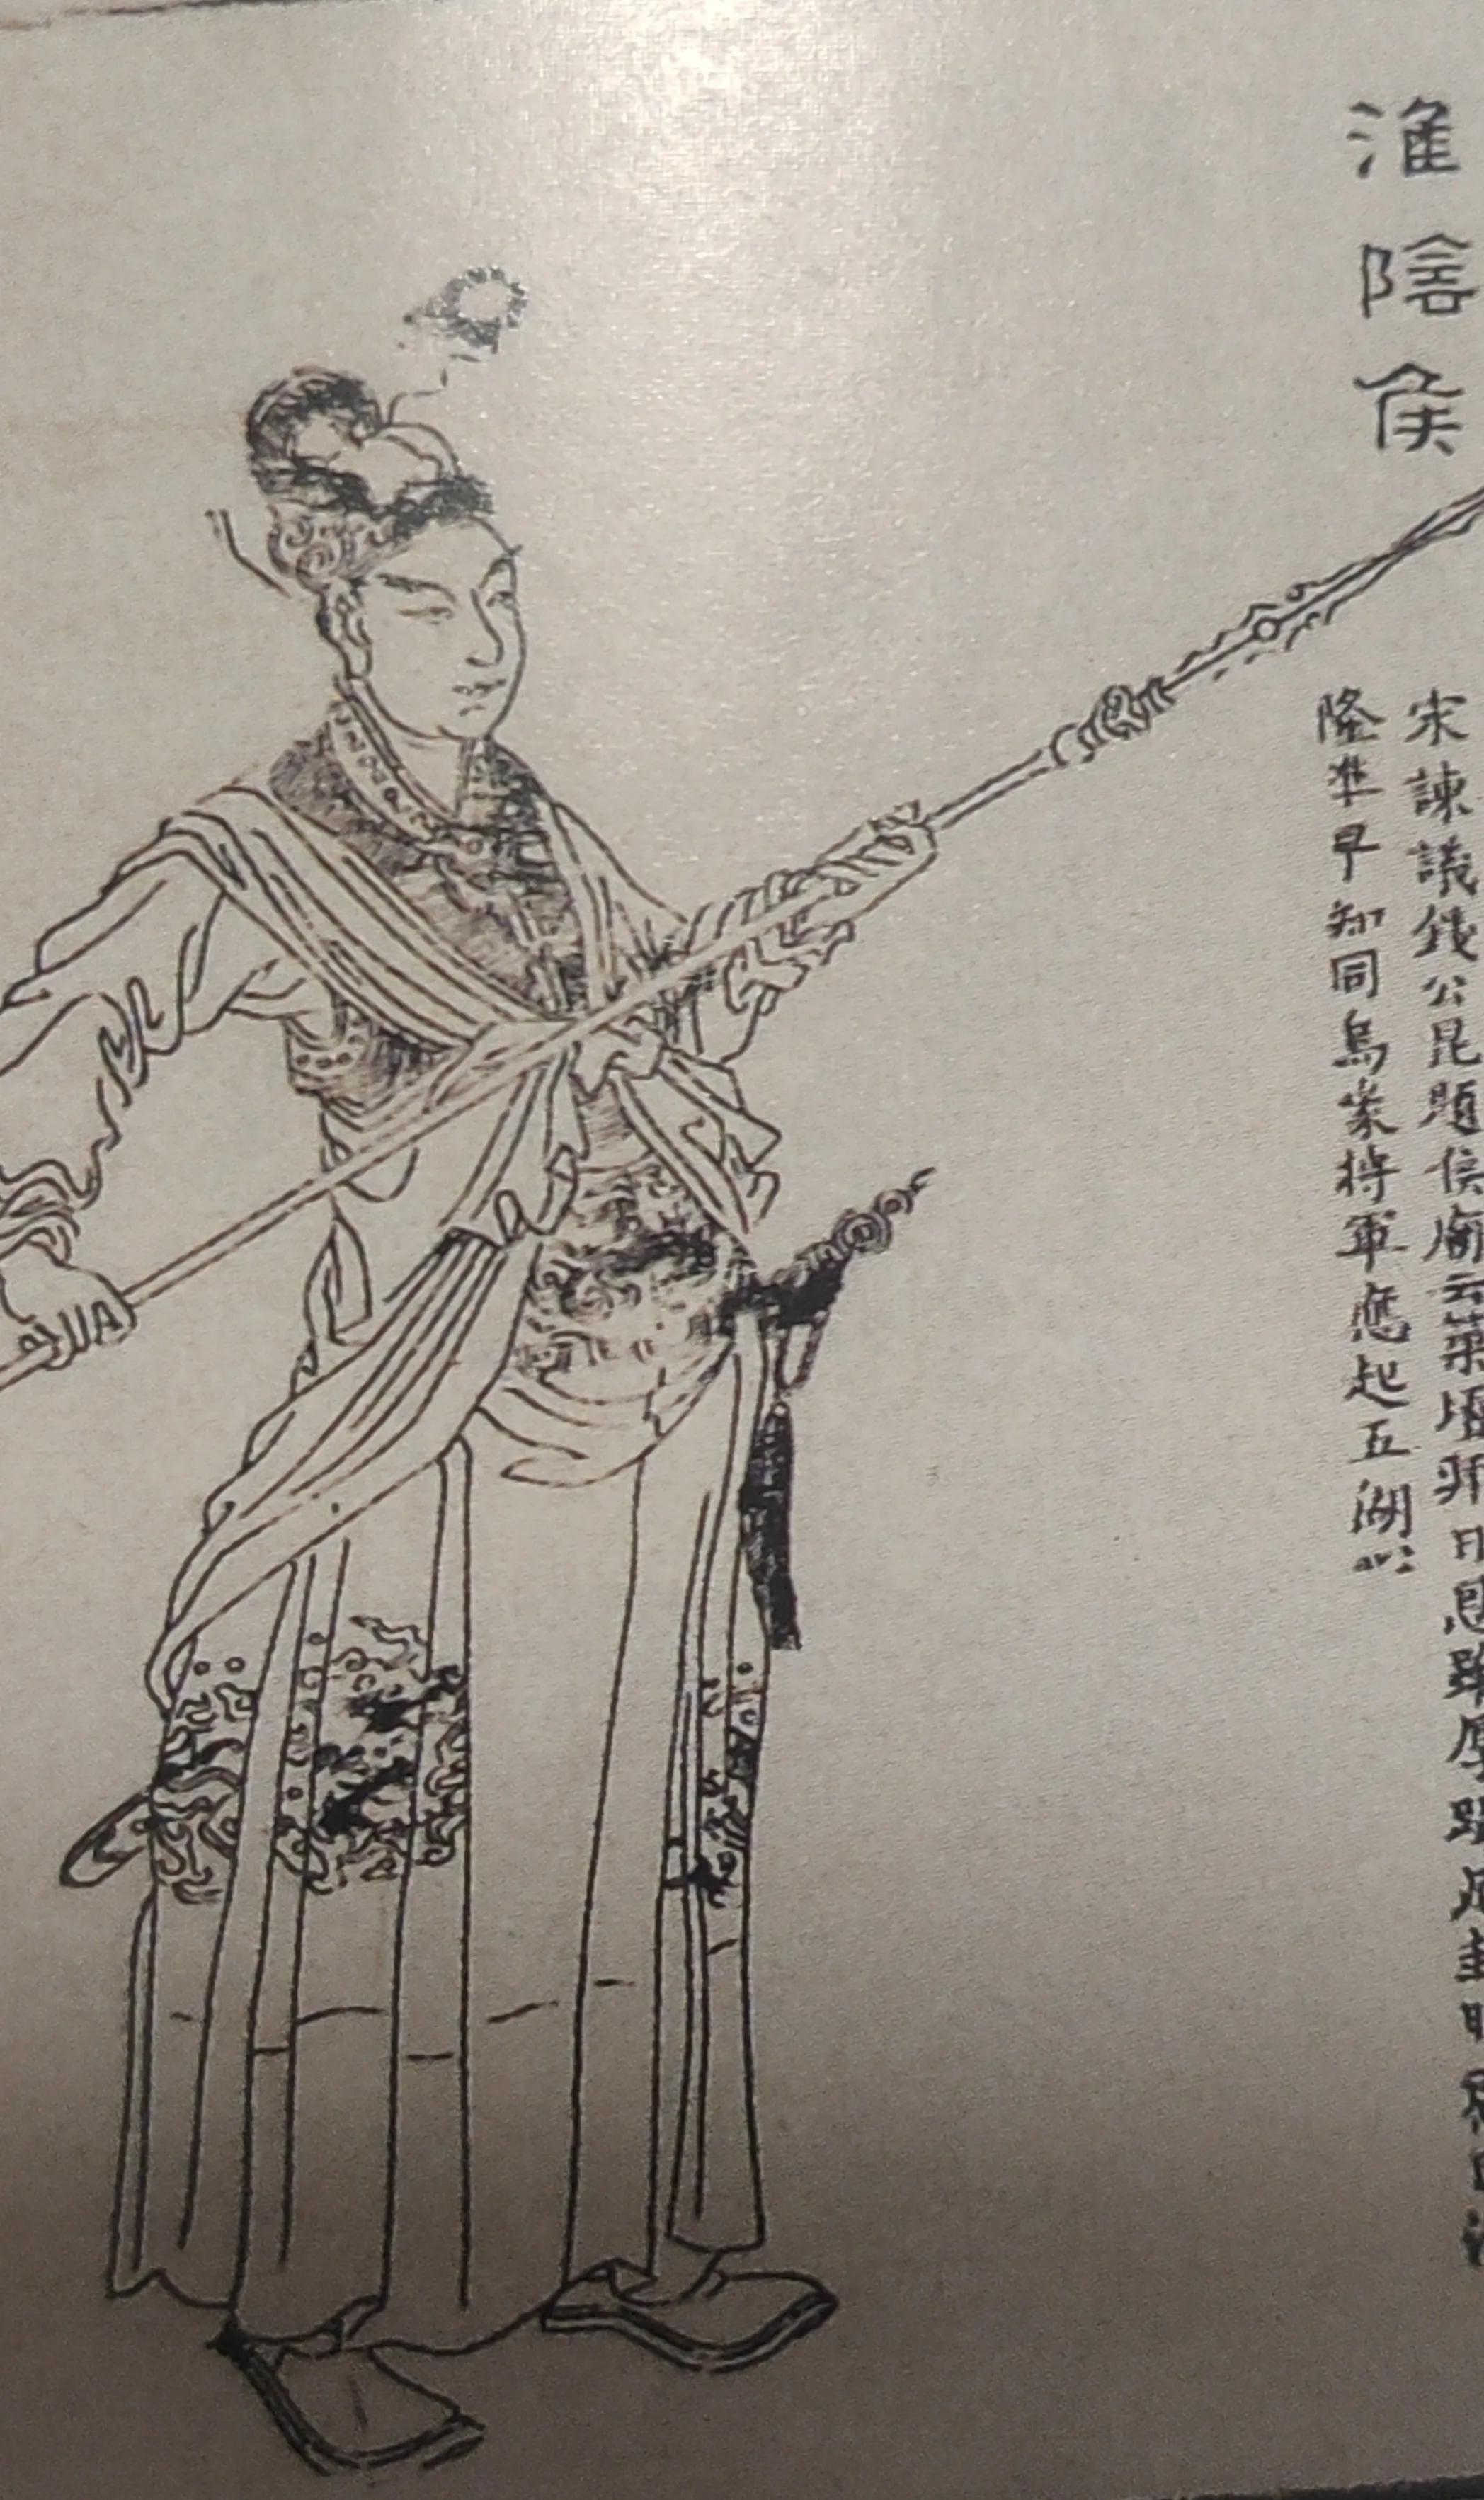 淮陰侯
宋諫議錢公昆題侯廟云築壇拜日恩雖厚躡足封時慮已深
隆準早知同鳥喙將軍應起五湖心